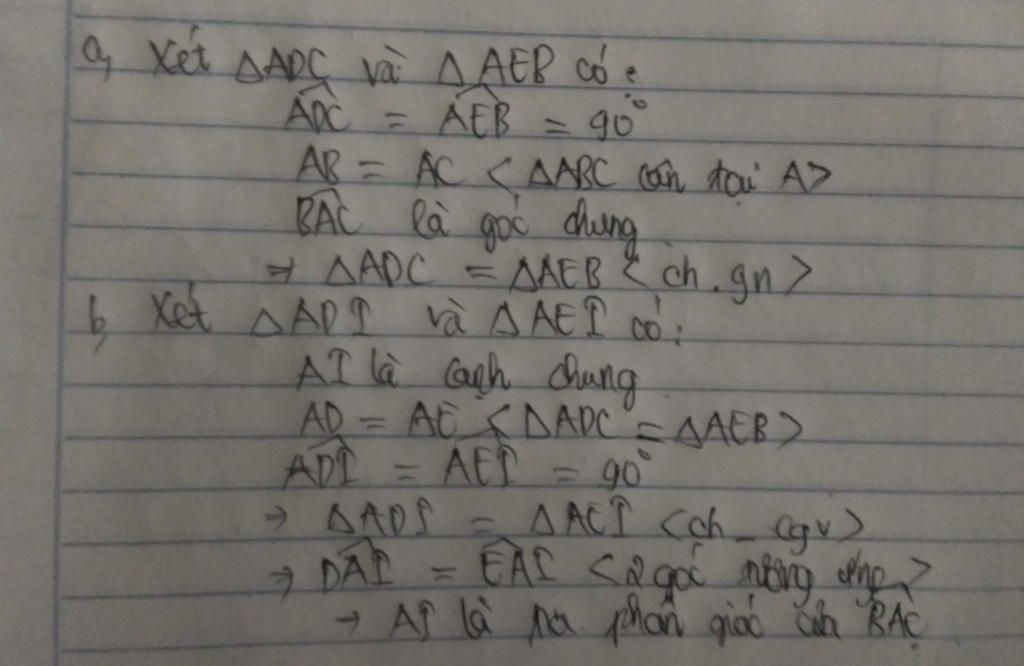 a, Xét ΔADC và ΔAEB có:
ADC = AEB = 90°
AB = AC < ΔABC cân tại A>
BAC là góc chung
⇒ ΔADC = ΔAEB < ch.gn >
b, Xét ΔADI và ΔAEI có:
AI là cạnh chung
AD = AE < ΔADC = ΔAEB >
ADI = AEI = 90°
→ ΔADI = ΔAEI <ch_cgv>
⇒ DAI = EAI <2 góc tương ứng>
→ AI là phân giác của BAC